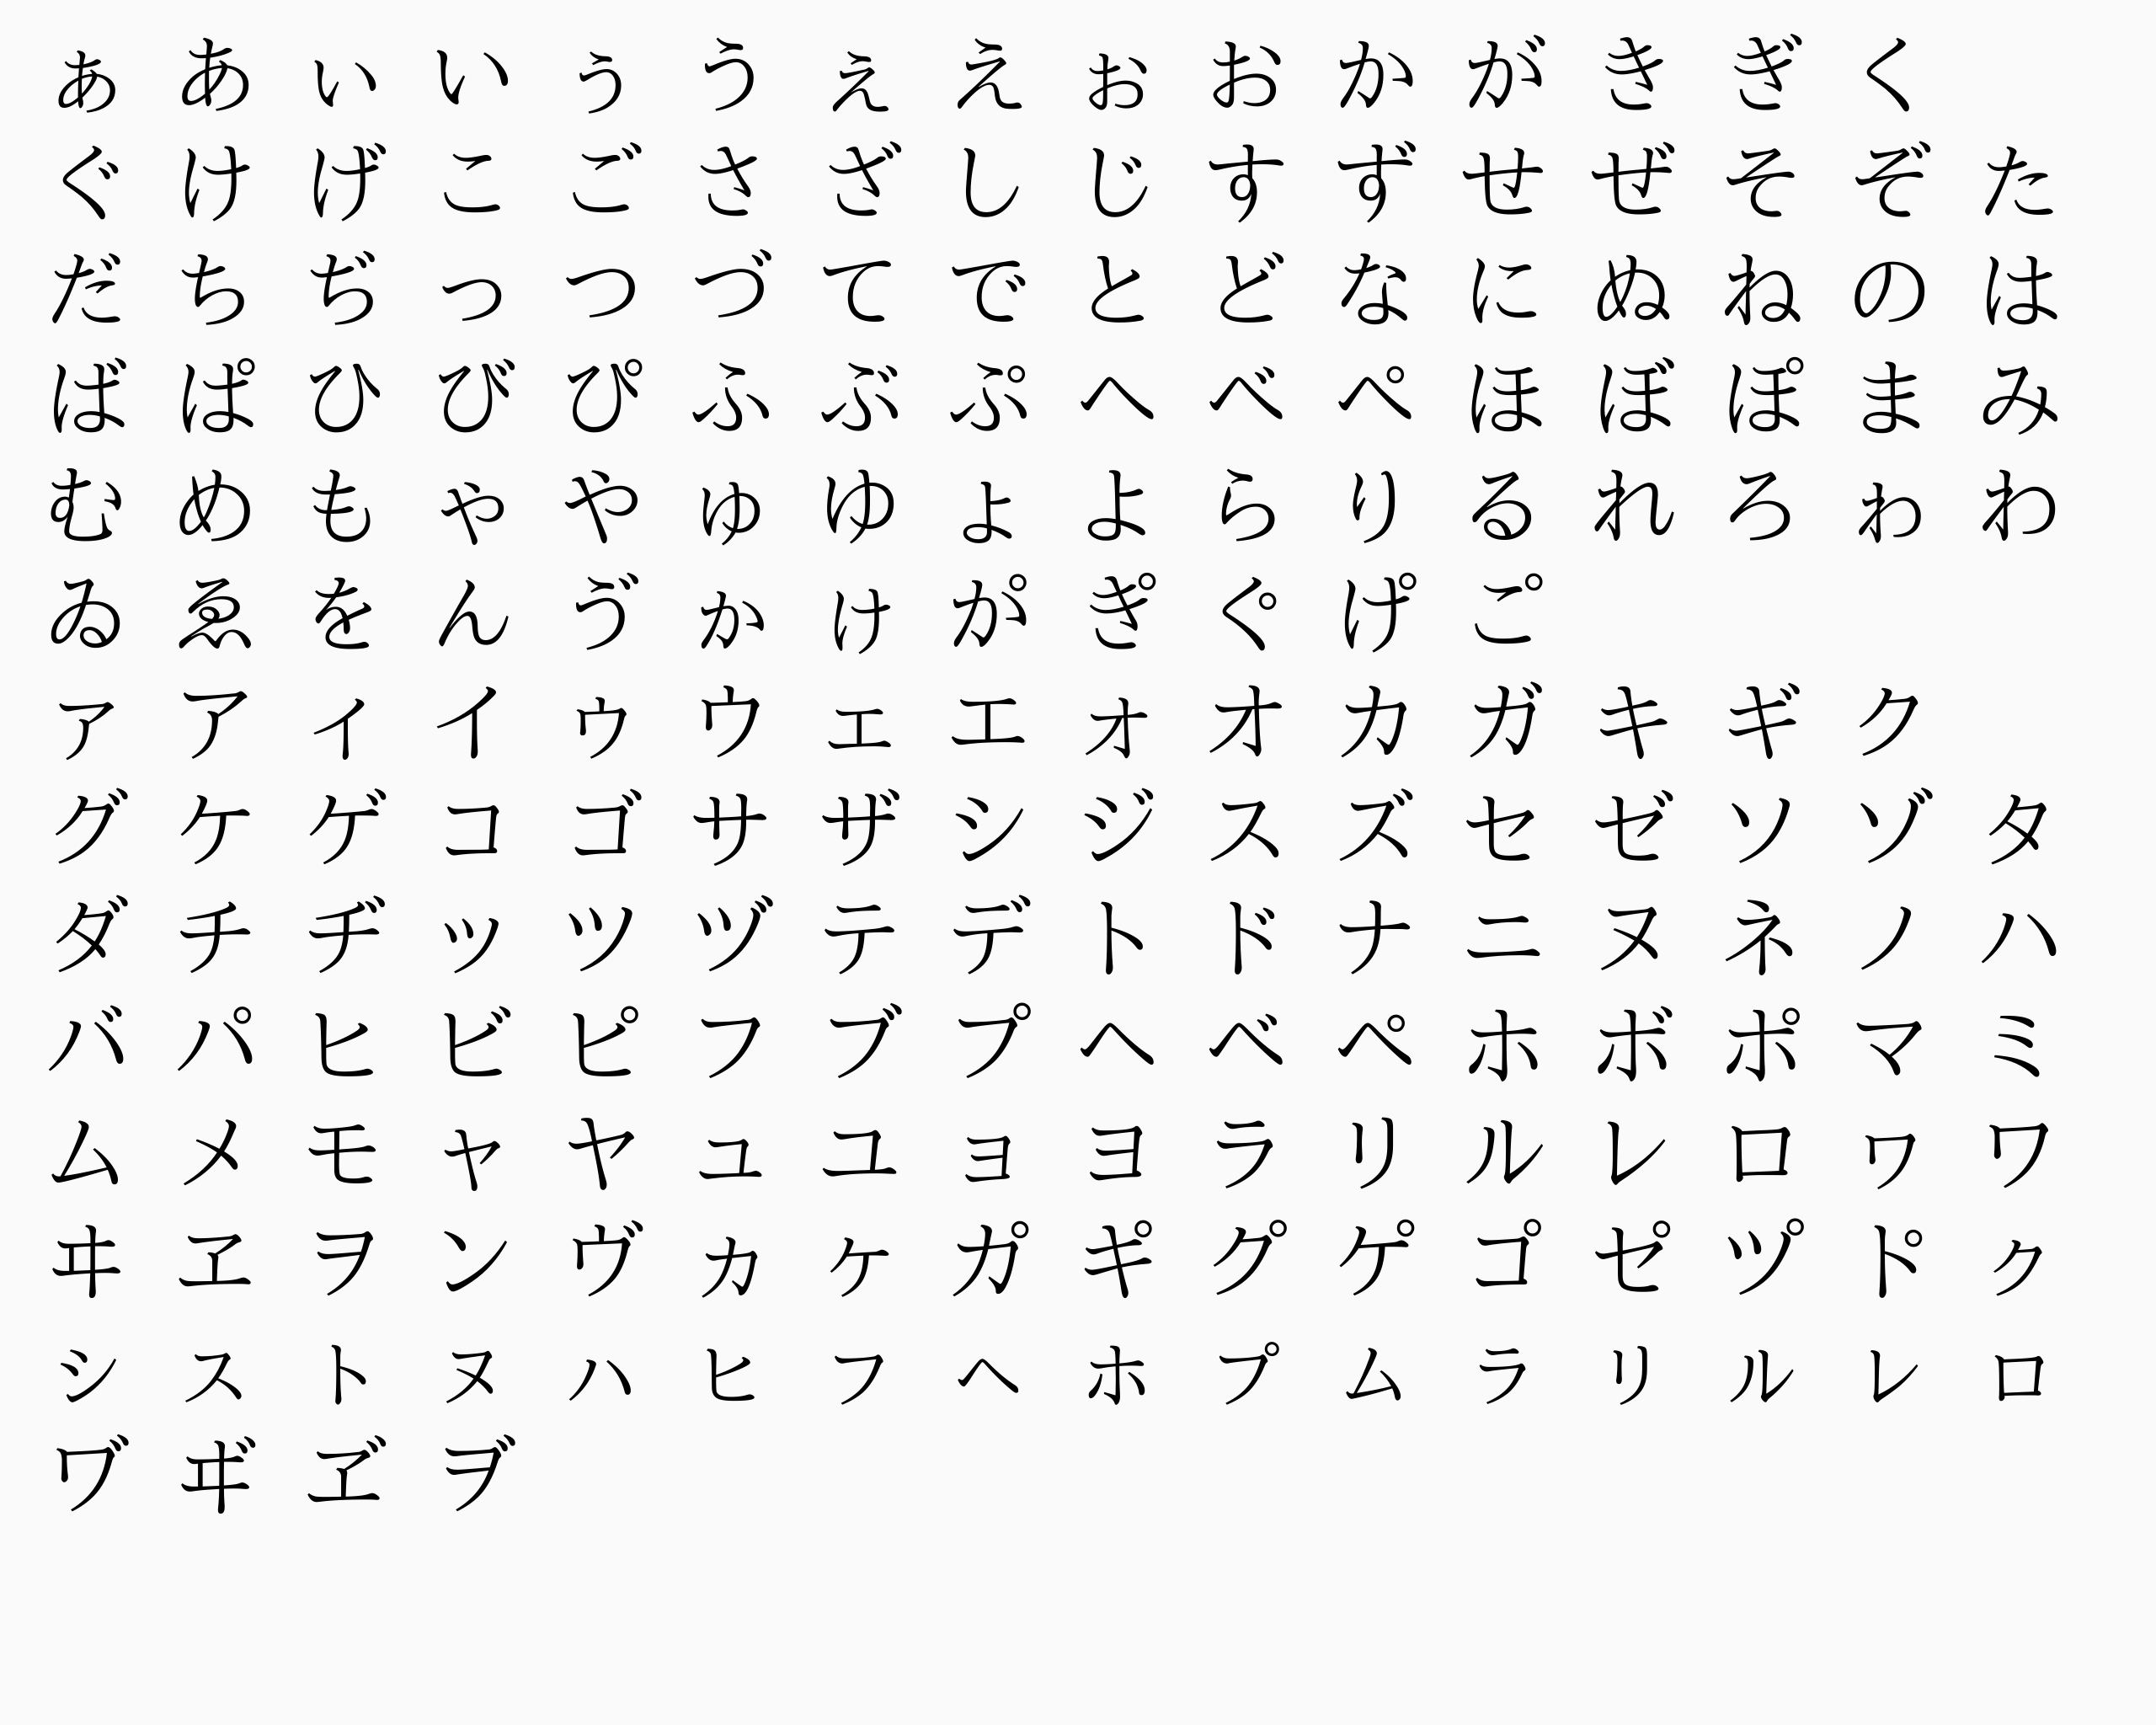 ぁ あ ぃ い ぅ う ぇ え ぉ お か が き ぎ く
ぐ け げ こ ご さ ざ し じ す ず せ ぜ そ ぞ た
だ ち ぢ っ つ づ て で と ど な に ぬ ね の は
ば ぱ ひ び ぴ ふ ぶ ぷ へ べ ぺ ほ ぼ ぽ ま み
む め も ゃ や ゅ ゆ ょ よ ら り る れ ろ ゎ わ
ゐ ゑ を ん ゔ ゕ ゖ か゚ き゚ く゚ け゚ こ゚
ァ ア ィ イ ゥ ウ ェ エ ォ オ カ ガ キ ギ ク
グ ケ ゲ コ ゴ サ ザ シ ジ ス ズ セ ゼ ソ ゾ タ
ダ チ ヂ ッ ツ ヅ テ デ ト ド ナ ニ ヌ ネ ノ ハ
バ パ ヒ ビ ピ フ ブ プ ヘ ベ ペ ホ ボ ポ マ ミ
ム メ モ ャ ヤ ュ ユ ョ ヨ ラ リ ル レ ロ ヮ ワ
ヰ ヱ ヲ ン ヴ ヵ ヶ カ゚ キ゚ ク゚ ケ゚ コ゚ セ゚ ツ゚ ト゚ ㇰ
ㇱ ㇲ ㇳ ㇴ ㇵ ㇶ ㇷ ㇸ ㇹ ㇷ゚ ㇺ ㇻ ㇼ ㇽ ㇾ ㇿ
ヷ ヸ ヹ ヺ